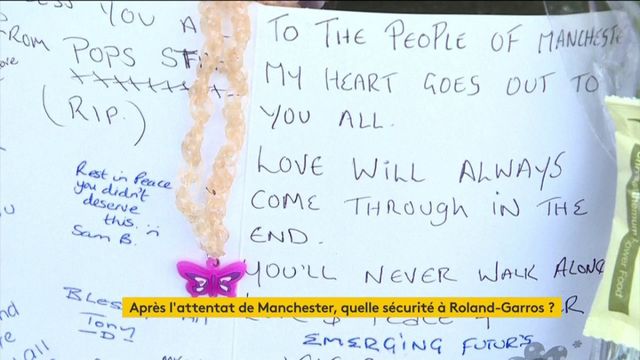 YOU A
FROM POPS ST
xxxxxxxxxxx
(RIP.)
Rest in Peace
you didn't
deserve
this.
Sam B.
Bles
Tony
D
all
TO THE PEOPLE OF MANCHESTE
MY HEART GOES OUT TO
YOU ALL.
LOVE WILL ALWAYS
COME THROUGH IN THE
END.
YOU'LL NEVER WALK ALONE
EMERGING FUTURS
Après l'attentat de Manchester, quelle sécurité à Roland-Garros ?
Power Food